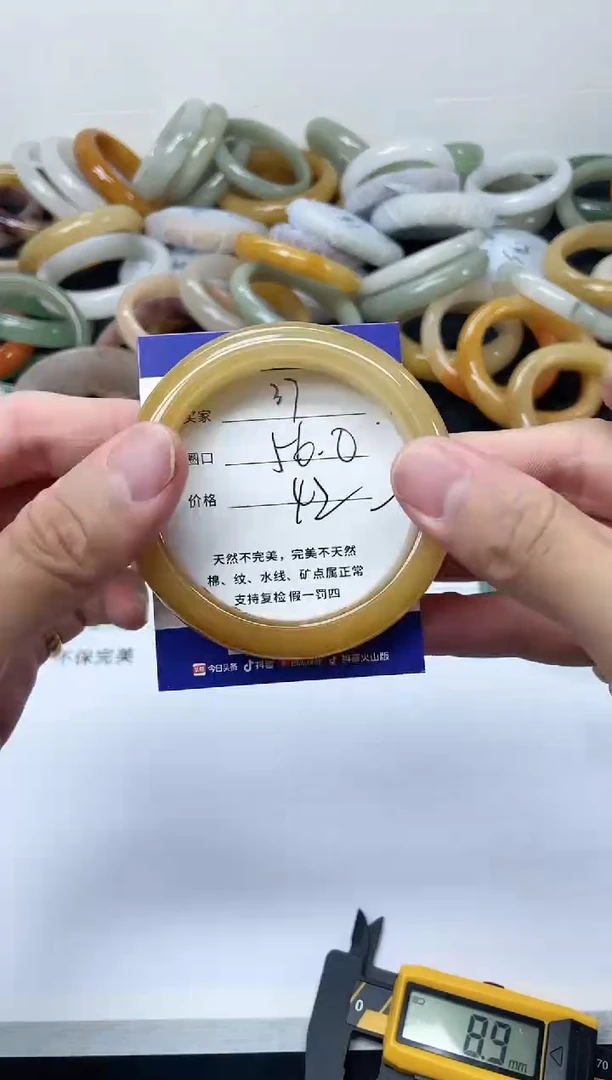 买家 37
圈口 56.0
价格 42
天然不完美，完美不天然
棉、纹、水线、矿点属正常
支持复检假一罚四
不保完美
今日头条 抖音 抖音火山版
0
8.9 mm
70